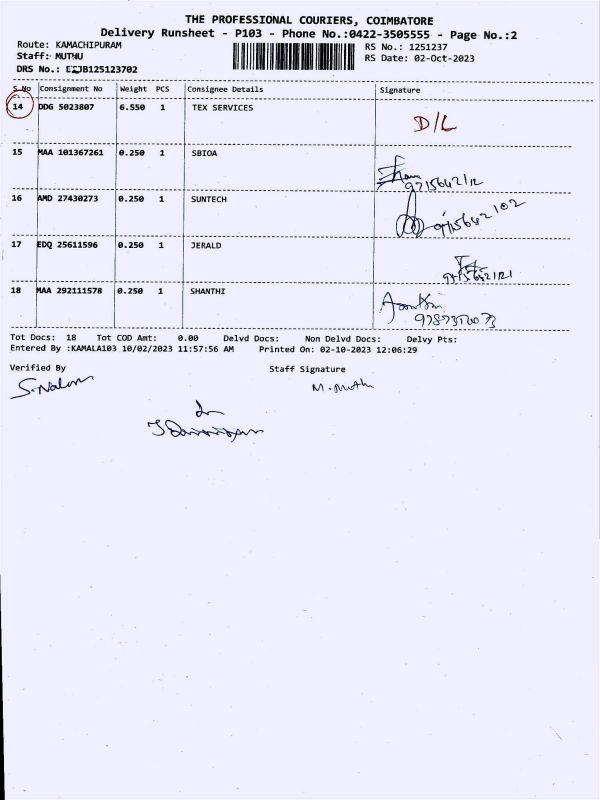 THE PROFESSIONAL COURIERS, COIMBATORE
Delivery Runsheet - P103 - Phone No.:0422-3505555 - Page No.:2
Route: KAMACHIPURAM RS No.: 1251237
Staff: MUTHU RS Date: 02-Oct-2023
DRS No.:
S.No Consignment No Weight PCS Consignee Details Signature
14 DDG 5023807 6.550 1 TEX SERVICES D/L
15 MAA 101367261 0.250 1 SBIOA
16 AMD 27430273 0.250 1 SUNTECH
17 EDQ 25611596 0.250 1 JERALD
18 MAA 292111578 0.250 1 SHANTHI
Tot Docs: 18 Tot COD Amt: 0.00 Delvd Docs: Non Delvd Docs: Delvy Pts:
Entered By :KAMALA103 10/02/2023 11:57:56 AM Printed On: 02-10-2023 12:06:29
Verified By Staff Signature